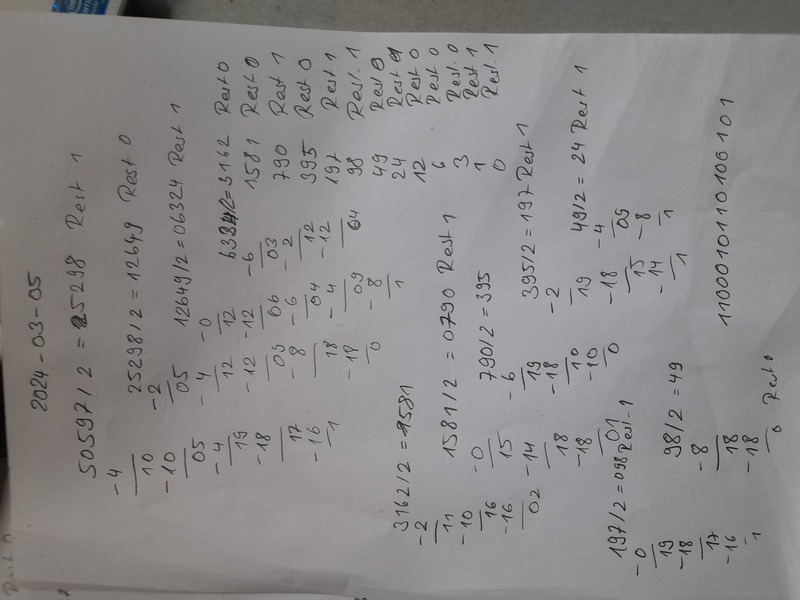 2024-03-05
50597/2 = 25298 Rest 1
-4
10
-10
05
-4
19
-18
17
-16
1
25298/2 = 12649 Rest 0
-2
05
-4
12
-12
09
-8
18
-18
0
12649/2 = 06324 Rest 1
-0
12
-12
06
-6
04
-4
09
-8
1
6324/2 = 3162 Rest 0
-6
03
-2
12
-12
04
1581 Rest 0
790 Rest 1
395 Rest 0
197 Rest 1
98 Rest 1
49 Rest 0
24 Rest 1
12 Rest 0
6 Rest 0
3 Rest 0
1 Rest 1
0 Rest 1
3162/2 = 1581
-2
11
-10
16
-16
02
1581/2 = 0790 Rest 1
-0
15
-14
18
-18
01
790/2 = 395
-6
19
-18
10
-10
0
395/2 = 197 Rest 1
-2
19
-18
15
-14
1
49/2 = 24 Rest 1
-4
09
-8
1
197/2 = 098 Rest 1
-0
19
-18
17
-16
1
98/2 = 49
-8
18
-18
0 Rest 0
1100010110100101